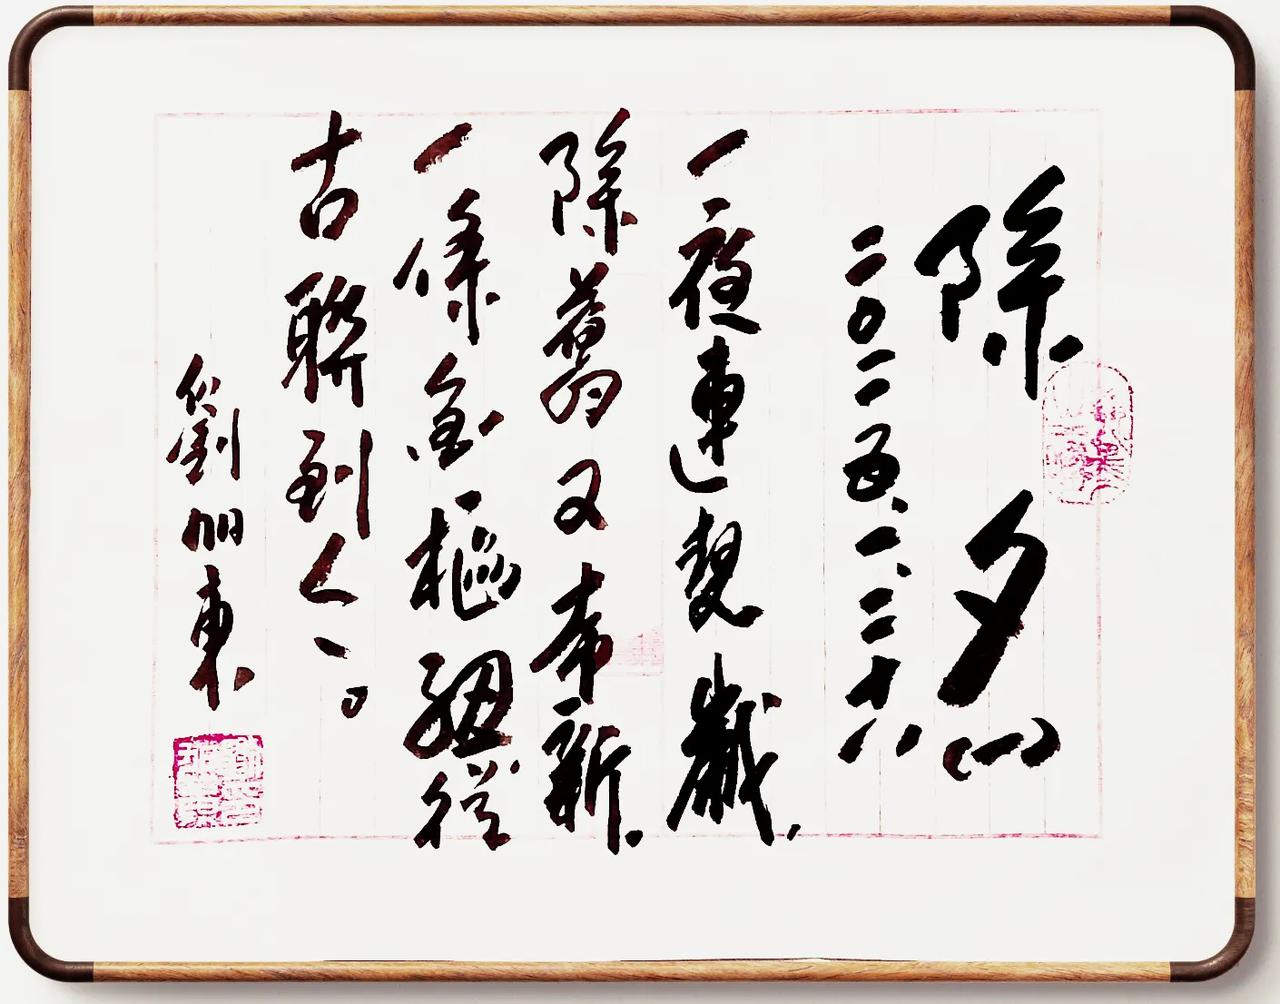 除夕(一)
二〇二五、一、二十八
一夜連雙歲,
除舊又布新.
一條金樞紐從
古聯到今、。
劉旭東